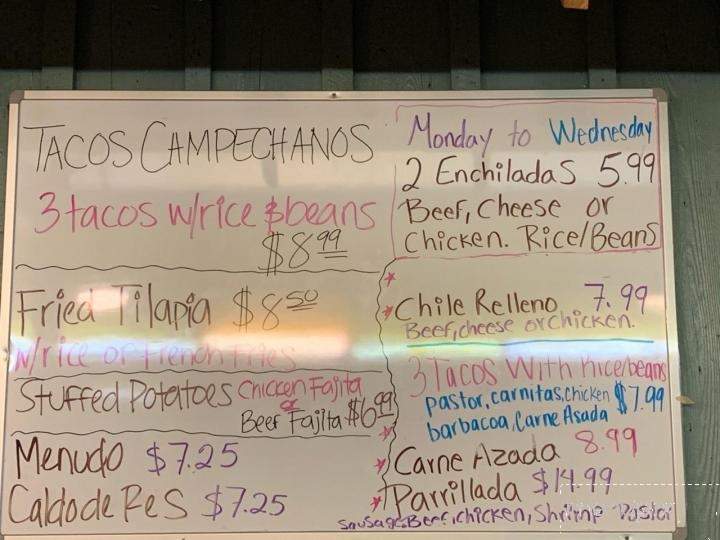 TACOS CAMPECHANOS
3 tacos w/rice & beans
$8.99
Fried Tilapia $8.50
w/rice or French Fries
Stuffed Potatoes Chicken Fajita
or
Beef Fajita $6.99
Menudo $7.25
Caldo de Res $7.25
Monday to Wednesday
2 Enchiladas 5.99
Beef, Cheese or
Chicken. Rice/Beans
Chile Relleno 7.99
Beef, cheese or chicken.
3 Tacos With Rice/beans
pastor, carnitas, chicken $7.99
barbacoa, Carne Asada
Carne Azada 8.99
Parrillada $14.99
Sausage, Beef, chicken, Shrimp Pastor